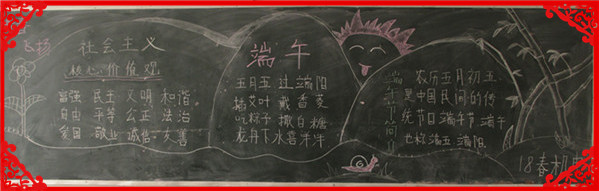 飞扬
社会主义
核心价值观
富强 民主 文明 和谐
自由 平等 公正 法治
爱国 敬业 诚信 友善
端午
五月五 过端阳
插艾叶 戴香囊
吃粽子 撒白糖
龙舟下水喜洋洋
端午小问
农历五月初五
是中国民间的传
统节日端午节 端午
也称端五 端阳
18春机电